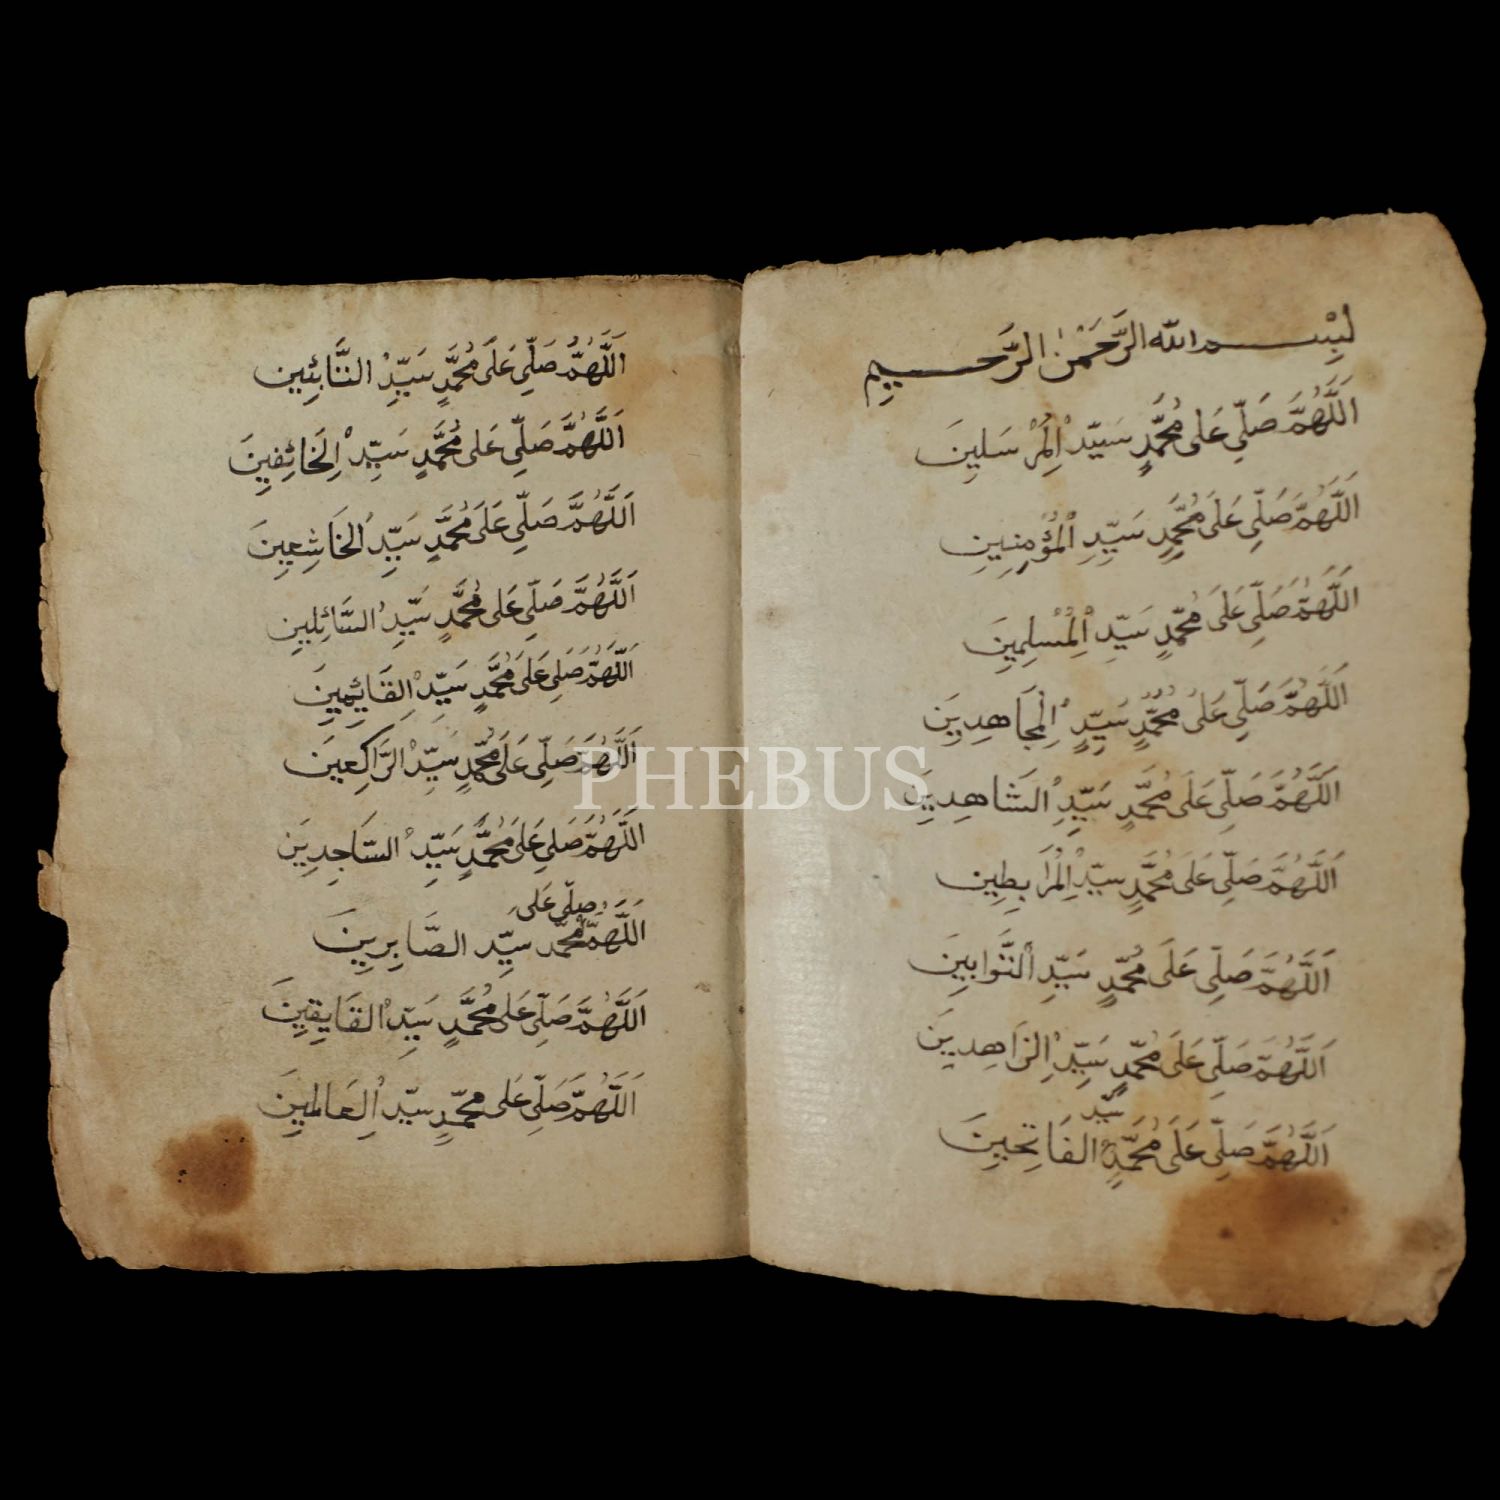 بِسْمِ اللّٰهِ الرَّحْمٰنِ الرَّحِيمِ
اَللَّهُمَّ صَلِّى عَلَى مُحَمَّدٍ سَيِّدِ الْمُرْسَلِينَ
اَللَّهُمَّ صَلِّى عَلَى مُحَمَّدٍ سَيِّدِ الْمُؤْمِنِينَ
اَللَّهُمَّ صَلِّى عَلَى مُحَمَّدٍ سَيِّدِ الْمُسْلِمِينَ
اَللَّهُمَّ صَلِّى عَلَى مُحَمَّدٍ سَيِّدِ الْمُجَاهِدِينَ
اَللَّهُمَّ صَلِّى عَلَى مُحَمَّدٍ سَيِّدِ الشَّاهِدِينَ
اَللَّهُمَّ صَلِّى عَلَى مُحَمَّدٍ سَيِّدِ الْمُرَابِطِينَ
اَللَّهُمَّ صَلِّى عَلَى مُحَمَّدٍ سَيِّدِ التَّوَّابِينَ
اَللَّهُمَّ صَلِّى عَلَى مُحَمَّدٍ سَيِّدِ الزَّاهِدِينَ
اَللَّهُمَّ صَلِّى عَلَى مُحَمَّدٍ سَيِّدِ الفَاتِحِينَ
اَللَّهُمَّ صَلِّى عَلَى مُحَمَّدٍ سَيِّدِ التَّائِبِين
اَللَّهُمَّ صَلِّى عَلَى مُحَمَّدٍ سَيِّدِ الْخَائِفِينَ
اَللَّهُمَّ صَلِّى عَلَى مُحَمَّدٍ سَيِّدِ الْخَاشِعِينَ
اَللَّهُمَّ صَلِّى عَلَى مُحَمَّدٍ سَيِّدِ السَّائِلِينِ
اَللَّهُمَّ صَلِى عَلَى مُحَمَّدٍ سَيِّدِ الْقَائِمِينَ
اَللَّهُمَّ صَلِّى عَلَى مُحَمَّدٍ سَيِّدِ الرَّاكِعِينَ
اَللَّهُمَّ صَلِى عَلَى مُحَمَّدٍ سَيِّدِ السَّاجِدِينَ
اَللَّهُمَّ صَلِّى عَلَى مُحَمَّد سَيِّدِ الصَّابِرِينَ
اَللَّهُمَّ صَلِّى عَلَى مُحَمَّدٍ سَيِّدِ القَايِقِينَ
اَللَّهُمَّ صَلِّى عَلَى مُحَمَّدٍ سَيِّدِ الْعَالَمِينَ
PHEBUS